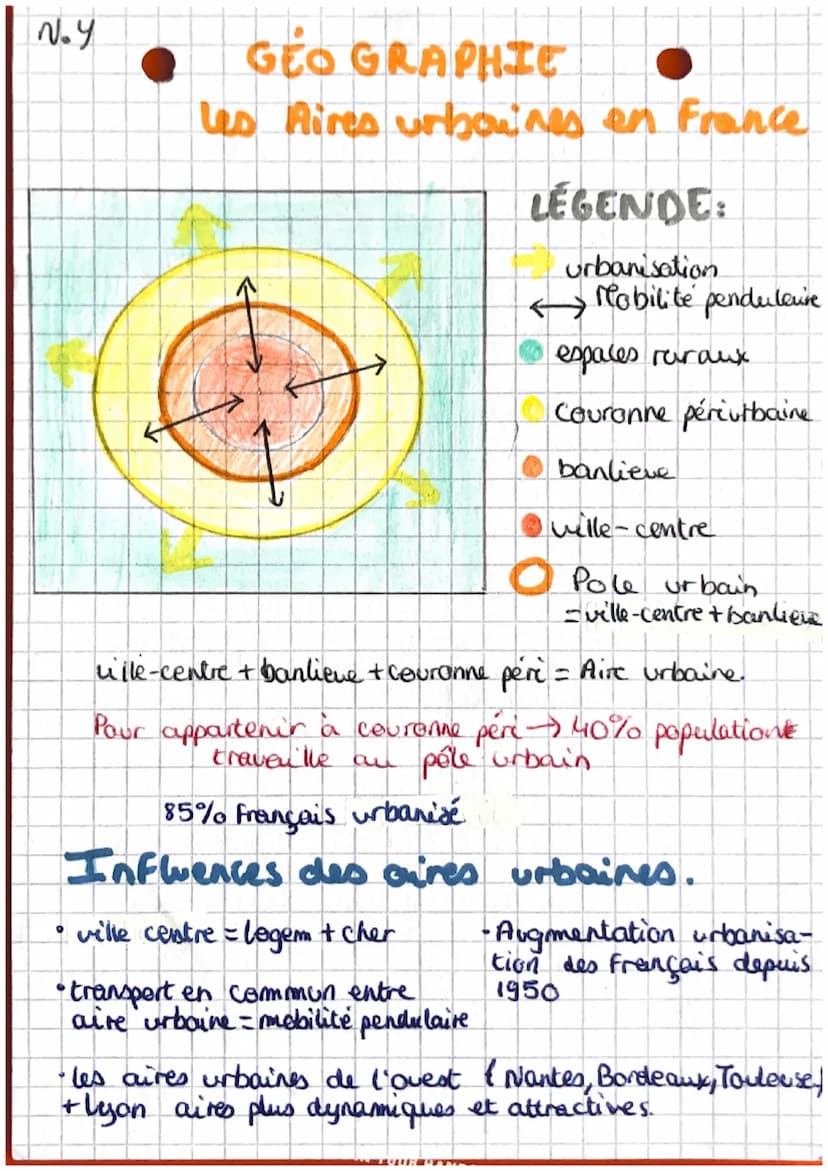 N.Y
GÉOGRAPHIE
Les Aires urbaines en France
LÉGENDE:
urbanisation
Mobilité pendulaire
espaces ruraux
couronne périurbaine
banlieue
ville-centre
Pole urbain
=ville-centre+banlieue
ville-centre + banlieue + couronne péri = Aire urbaine.
Pour appartenir à couronne péri → 40% population
travaille au pôle urbain
85% Français urbanisé
Influences des aires urbaines.
• ville centre = logem + cher
• transport en commun entre
aire urbaine = mobilité pendulaire
• Augmentation urbanisa-
tion des Français depuis
1950
• les aires urbaines de l'ouest (Nantes, Bordeaux, Toulouse)
+ Lyon aires plus dynamiques et attractives.